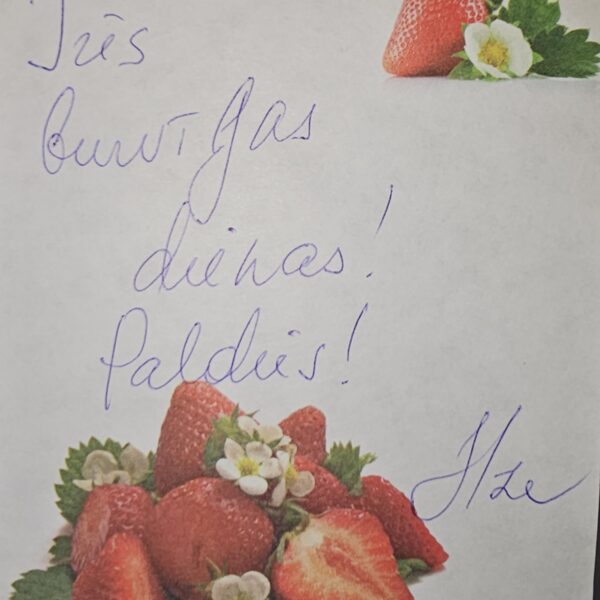 Trīs
burvīgas
dienas!
Paldies!
Ilze